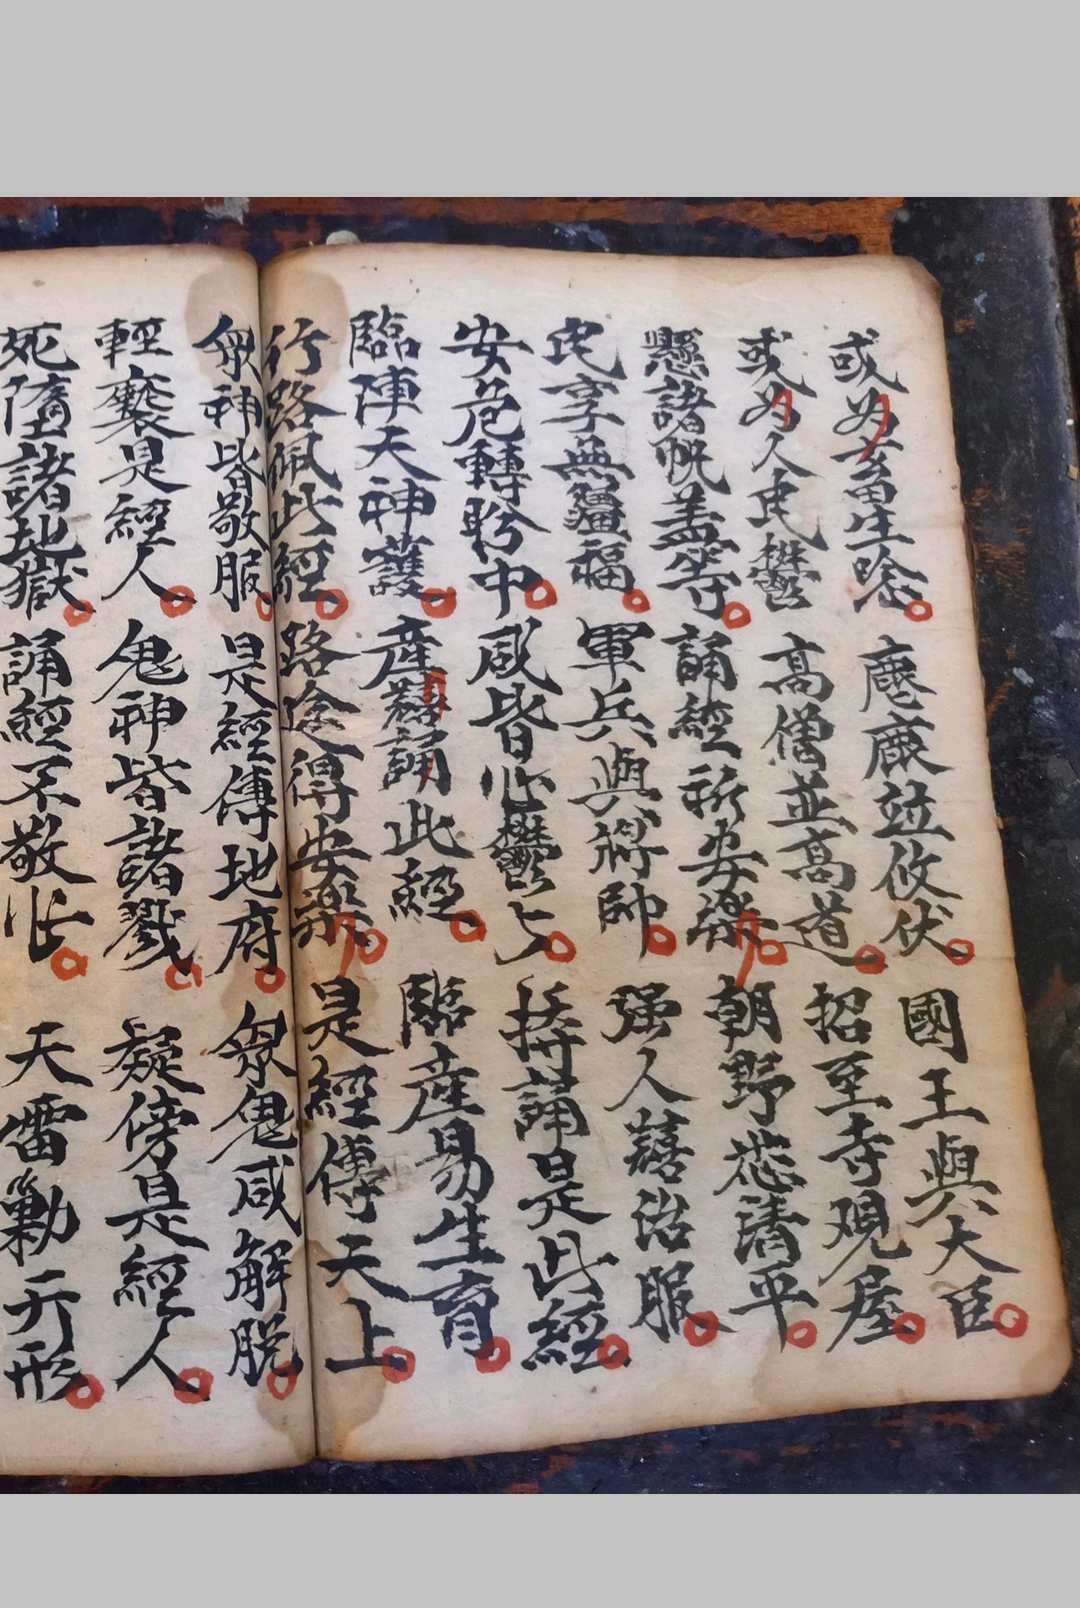 或为畜生唸鹿麃竝攸伏國王與大臣
或为人民鬱高僧並高道招至寺观屋
懸諸幌盖等誦經祈安樂朝野悉清平
民享無疆福軍兵與将帥强人囍治服
安危轉盼中咸皆心鬱上持誦是此經
臨陣天神護產難誦此經臨產易生育
行路佩此經路途得安樂是經傳天上
衆神皆敬服是經傳地府衆鬼咸解脱
輕褻是經人鬼神皆諸戮疑傍是經人
死墮諸地獄誦經不敬心天雷勦行形